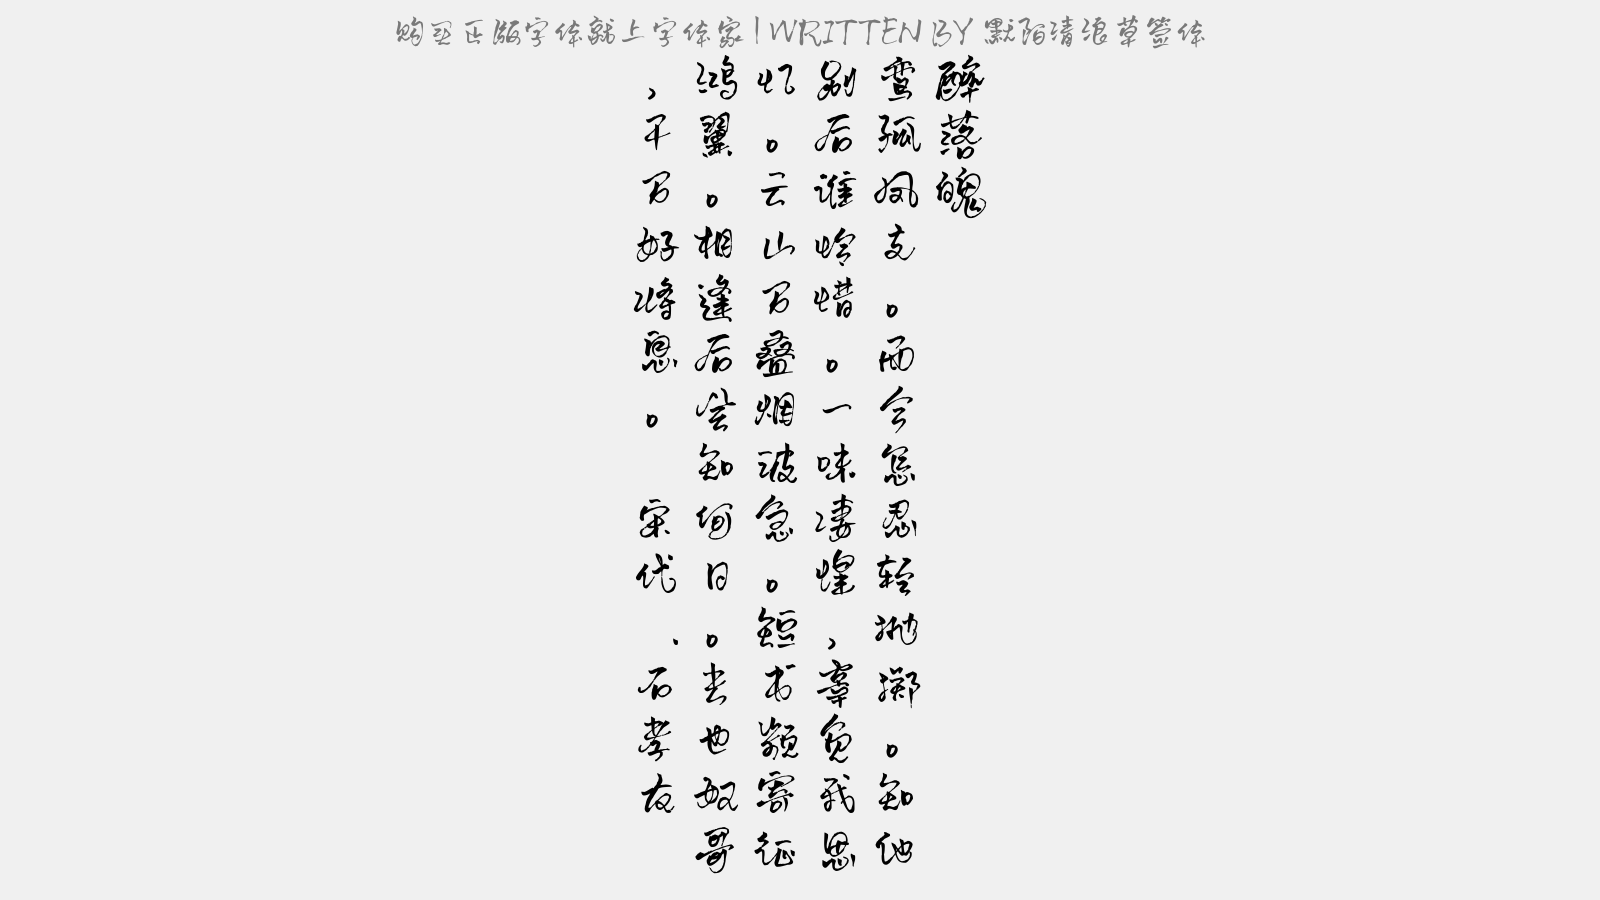 购买正版字体就上字体家 | WRITTEN BY 默陌清浪草签体
醉落魄
鸾孤凤支。而今怎忍轻抛掷。知他
别后谁怜惜。一味凄惶，辜负我思
忆。云山万叠烟波急。短书频寄征
鸿翼。相逢后会知何日。去也奴哥
，千万好将息。 宋代．石孝友